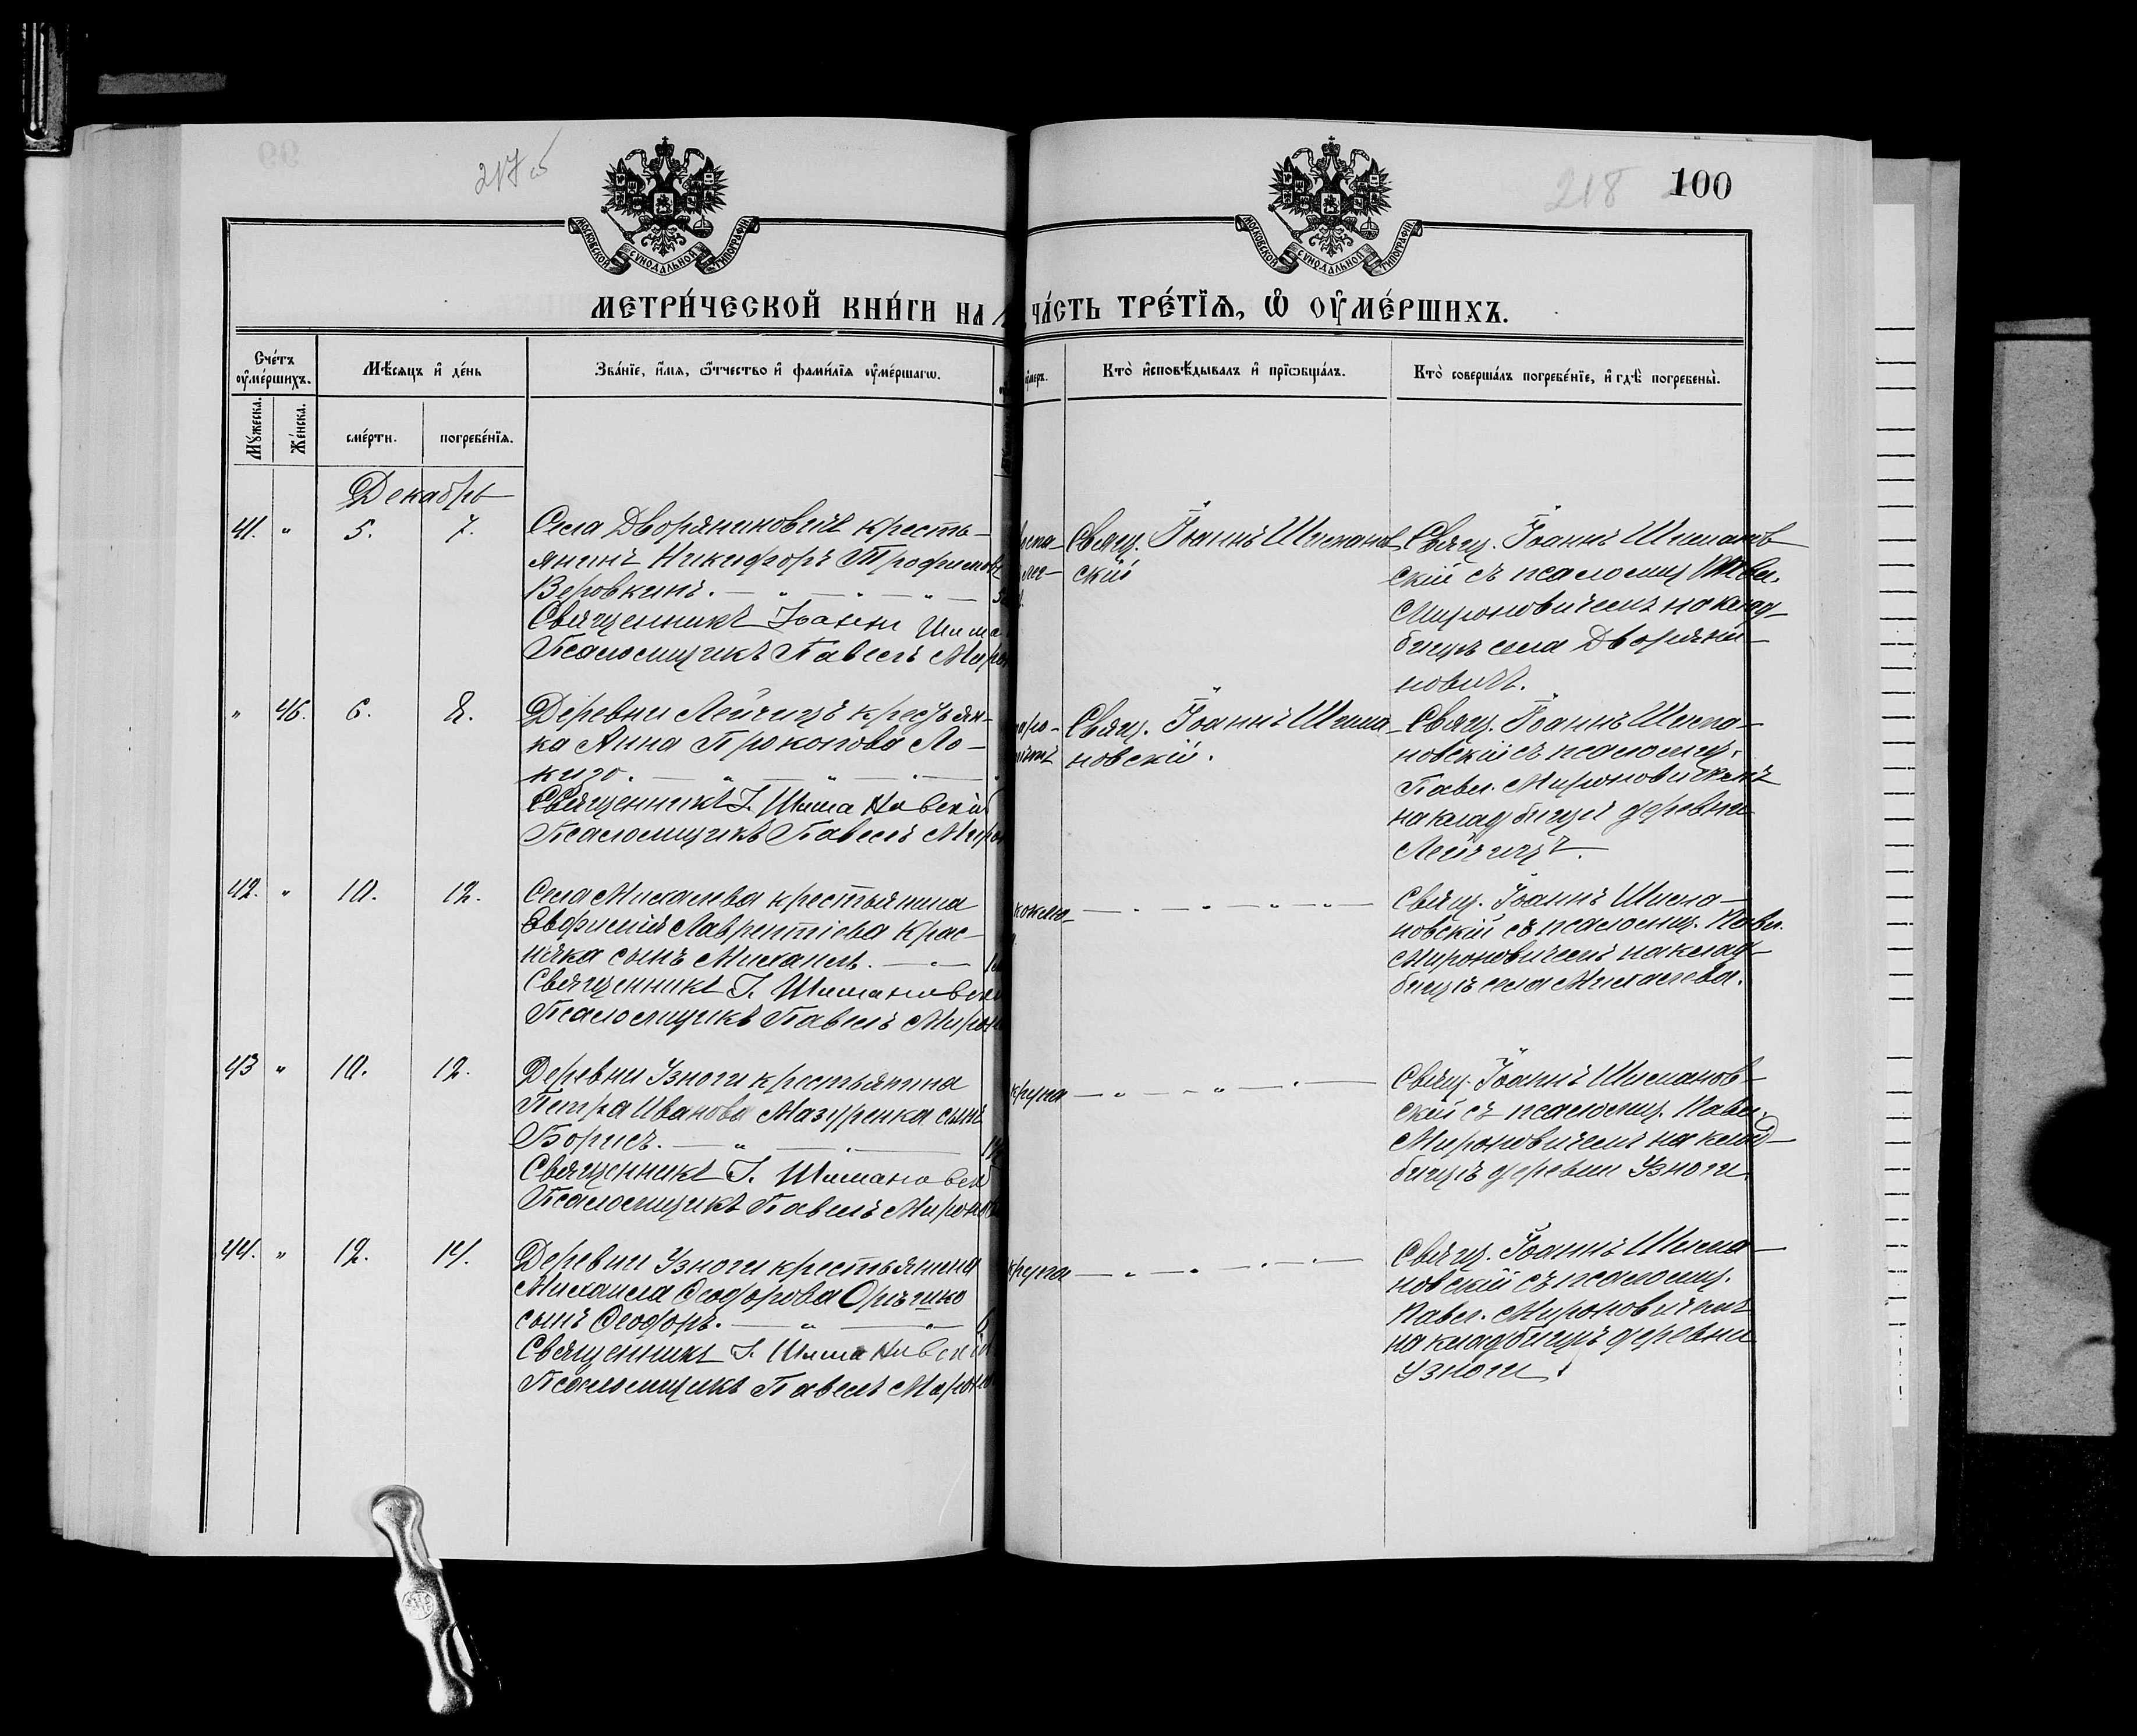 217 об
218
100
МОСКОВСКОЙ СѴНОДАЛЬНОЙ ТИПОГРАФІИ
МОСКОВСКОЙ СѴНОДАЛЬНОЙ ТИПОГРАФІИ
МЕТРИ́ЧЕСКОЙ КНИ́ГИ НА
ЧА́СТЬ ТРЕ́ТІѦ, Ѡ҆ ОУ҆МЕ́РШИХЪ.
Сче́тъ
оу҆ме́ршихъ.
Мѣ́сѧцъ и҆ де́нь
Зва́нїе, и҆́мѧ, ѻ҆́тчество и҆ фами́лїѧ оу҆ме́ршагѡ.
Кто̀ и҆сповѣ́дывалъ и҆ прїѡбща́лъ.
Кто̀ соверша́лъ погребе́нїе, и҆ гдѣ̀ погребены̀.
Мꙋ́жеска.
Же́нска.
сме́рти.
погребе́нїѧ.
Декабрь
41. " 5. 7.
Села Дворяниновичъ кресть-
янинъ Никифоръ Трофимовъ
Веровкинъ.
Священникъ Іоаннъ Шима
Псаломщикъ Павелъ Миро
Свящ. Іоаннъ Шиманов
скій
Свящ. Іоаннъ Шиманов
скій съ псаломщ. Пав.
Мироновичемъ на клад-
бищѣ села Дворяни-
новичъ.
" 46. 6. 8.
Деревни Лейчицъ крестьян-
ка Анна Прокопова Ло-
Священникъ І. Шимановскій
Псаломщикъ Павелъ Миро
Свящ. Іоаннъ Шима-
новскій.
Свящ. Іоаннъ Шима-
новскій съ псаломщ.
Павл. Мироновичемъ
на кладбищѣ деревни
Лейчицъ.
42. " 10. 12.
Села Михалева крестьянина
Евфимія Лаврентіева Крас-
няка сынъ Михаилъ.
Священникъ І. Шимановскі
Псаломщикъ Павелъ Мирон
коклю-
Свящ. Іоаннъ Шима-
новскій съ псаломщ. Павл.
Мироновичемъ на клад-
бищѣ села Михалева.
43 " 10. 12.
Деревни Узноги крестьянина
Петра Иванова Мазуренка сынъ
Борисъ.
Священникъ І. Шимановскі
Псаломщикъ Павелъ Миронов
крупа
Свящ. Іоаннъ Шиманов-
скій съ псаломщ. Павл.
Мироновичемъ на клад-
бищѣ деревни Узноги.
44. " 12. 14.
Деревни Узноги крестьянина
Михаила Ѳеодорова Орѣшко
сынъ Ѳеодоръ.
Священникъ І. Шимановскій
Псаломщикъ Павелъ Миронов
крупа
Свящ. Іоаннъ Шима-
новскій съ псаломщ.
Павл. Мироновичемъ
на кладбищѣ деревни
Узноги.